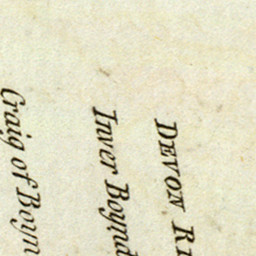 DEVON RI
Inver Boynd
Craig of Boyn